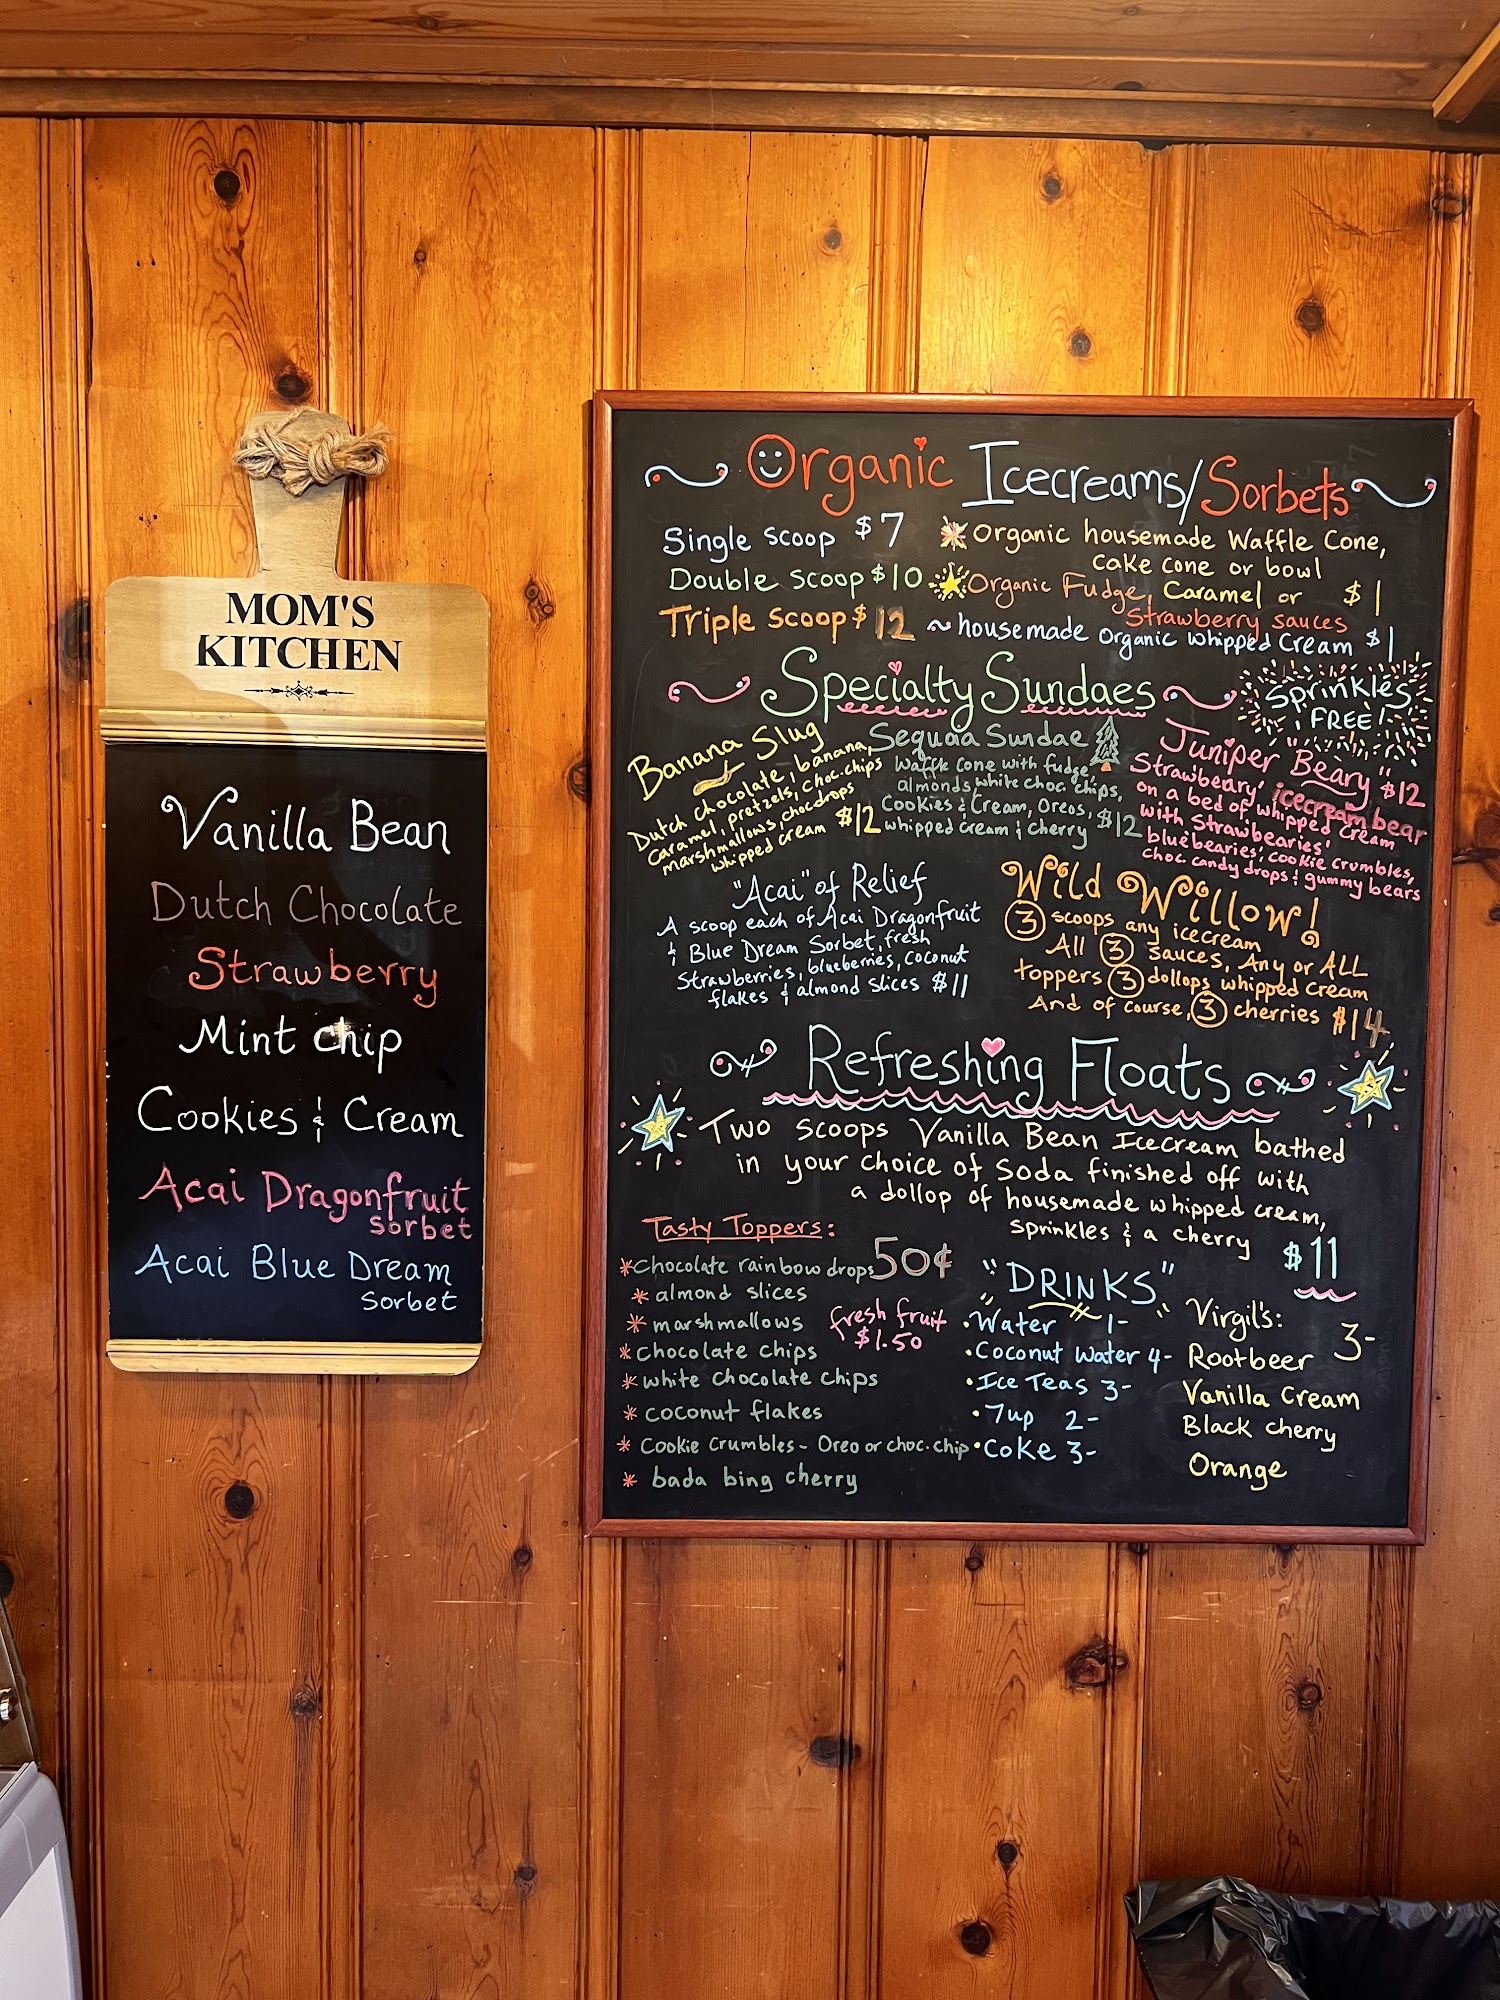 MOM'S
KITCHEN
Vanilla Bean
Dutch Chocolate
Strawberry
Mint chip
Cookies & Cream
Acai Dragonfruit
sorbet
Acai Blue Dream
sorbet
Organic Icecreams/Sorbets
Single scoop $7
Double scoop $10
Triple scoop $12
Organic housemade Waffle Cone,
cake cone or bowl
Organic Fudge, Caramel or $1
Strawberry sauces
~housemade organic whipped cream $1
Specialty Sundaes
Sprinkles
FREE!
Banana Slug
Dutch chocolate, banana,
caramel, pretzels, choc.chips
marshmallows, chocdrops
whipped cream $12
Sequoia Sundae
Waffle cone with fudge,
almonds, white choc. chips,
Cookies & Cream, Oreos, $12
whipped cream & cherry
Juniper "Beary" $12
Strawbeary icecream bear
on a bed of whipped cream
with Strawbearies'
bluebearies', cookie crumbles,
choc. candy drops & gummy bears
"Acai" of Relief
A scoop each of Acai Dragonfruit
& Blue Dream Sorbet, fresh
strawberries, blueberries, coconut
flakes & almond slices $11
Wild Willow!
3 scoops any icecream
All 3 sauces, Any or ALL
toppers 3 dollops whipped cream
And of course, 3 cherries $14
Refreshing Floats
Two scoops Vanilla Bean Icecream bathed
in your choice of soda finished off with
a dollop of housemade whipped cream,
sprinkles & a cherry $11
Tasty Toppers:
chocolate rainbow drops 50¢
almond slices
marshmallows
chocolate chips
white chocolate chips
coconut flakes
Cookie crumbles - Oreo or choc. chip
bada bing cherry
fresh fruit
$1.50
"DRINKS"
•Water 1-
•Coconut water 4-
•Ice Teas 3-
•7up 2-
•Coke 3-
Virgil's: 3-
Rootbeer
Vanilla Cream
Black cherry
Orange